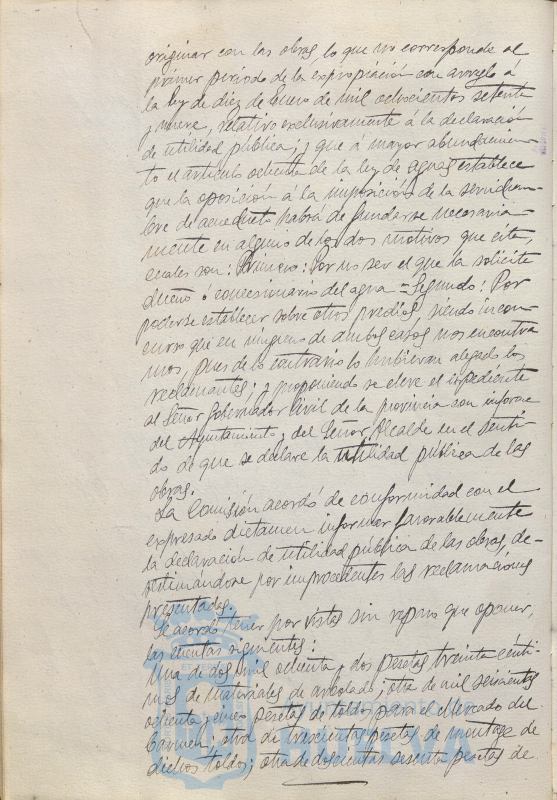 originar con las obras, lo que no corresponde al
primer período de la expropiación con arreglo á
la ley de diez de Enero de mil ochocientos setenta
y nueve, relativo exclusivamente á la declaración
de utilidad pública; y que á mayor abundamien-
to el artículo ochenta de la ley de aguas establece
que la oposición á la imposición de la servidum-
bre de acueducto habrá de fundarse necesaria-
mente en alguno de los dos motivos que cita,
cuales son: Primero: Por no ser el que la solicite
dueño ó concesionario del agua = Segundo: Por
poderse establecer sobre otros predios, siendo incon-
curso que en ninguno de ambos casos nos encontra
mos, pues de lo contrario lo hubieran alegado los
reclamantes; y proponiendo se eleve el expediente
al Señor Gobernador Civil de la provincia con informe
del Ayuntamiento y del Señor Alcalde en el senti-
do de que se declare la utilidad pública de las
obras.
La Comisión acordó de conformidad con el
expresado dictamen informar favorablemente
la declaración de utilidad pública de las obras, de-
sestimándose por improcedentes las reclamaciones
presentadas.
Se acordó tener por vistas sin reparo que oponer,
las cuentas siguientes:
Una de dos mil ochenta y dos pesetas treinta cénti-
mos de materiales de arbolado; otra de mil seiscientas
ochenta y cinco pesetas de toldos para el Mercado del
Carmen; otra de trescientas pesetas de montaje de
dichos toldos; otra de doscientas sesenta pesetas de